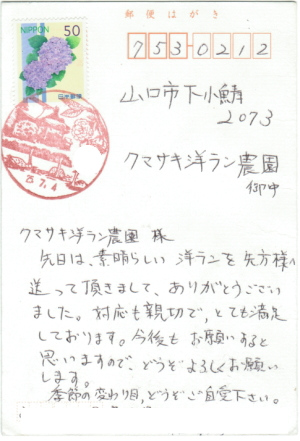 郵便はがき
NIPPON 50
日本郵便
753-0212
山口市下小鯖
2073
クマサキ洋ラン農園
御中
クマサキ洋ラン農園 様
先日は、素晴らしい 洋ランを 先方様へ
送って頂きまして、ありがとうござい
ました。対応も親切で、とても満足
しております。今後も お願いすると
思いますので、どうぞよろしくお願い
します。
季節の変わり目、どうぞご自愛下さい。